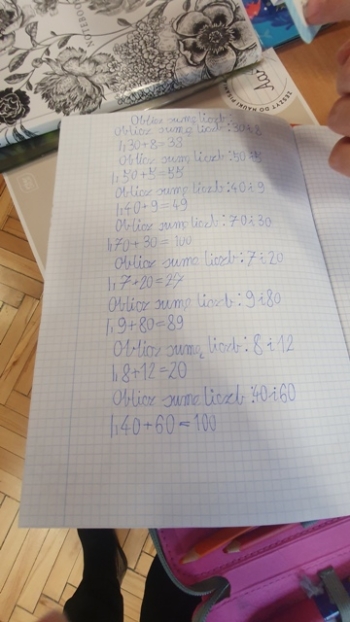 NOTEBOOK
ZESZYT DO NAUKI
Oblicz sumę liczb:
Oblicz sumę liczb: 30 i 8
30+8=38
Oblicz sumę liczb: 50 i 5
50+5=55
Oblicz sumę liczb: 40 i 9
40+9=49
Oblicz sumę liczb: 70 i 30
70+30=100
Oblicz sumę liczb: 7 i 20
7+20=27
Oblicz sumę liczb: 9 i 80
9+80=89
Oblicz sumę liczb: 8 i 12
8+12=20
Oblicz sumę liczb: 40 i 60
40+60=100